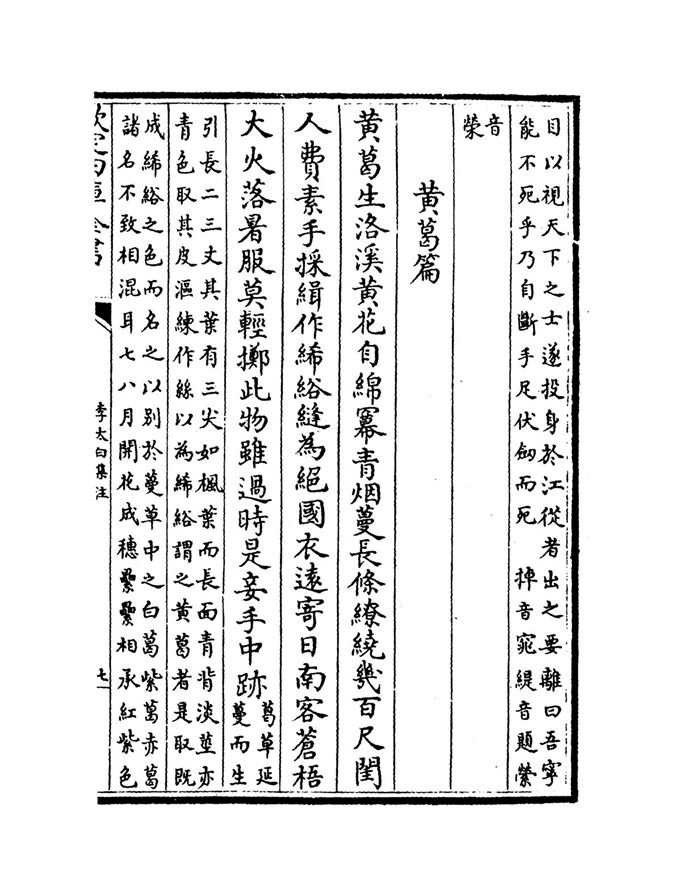 目以視天下之士遂投身於江從者出之要離曰吾寧
能不死乎乃自斷手足伏劔而死　揮音窕緹音題縈
音
榮
黄葛篇
黄葛生洛溪黄花自綿羃青烟蔓長條繚繞幾百尺閨
人費素手採緝作絺綌縫為絕國衣遠寄日南客蒼梧
大火落暑服莫輕擲此物雖過時是妾手中跡
葛草延
蔓而生
引長二三丈其葉有三尖如楓葉而長面青背淡莖亦
青色取其皮漚練作絲以為絺綌謂之黄葛者是取既
成絺綌之色而名之以别於蔓草中之白葛紫葛赤葛
諸名不致相混耳七八月開花成穗纍纍相承紅紫色
欽定四庫全書
李太白集注
七